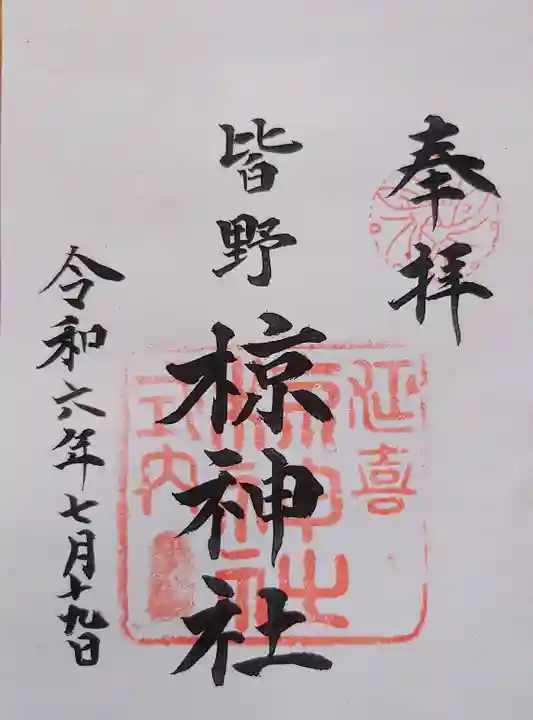 奉拝
皆野
椋神社
延喜
式内
椋神社
令和六年七月十九日